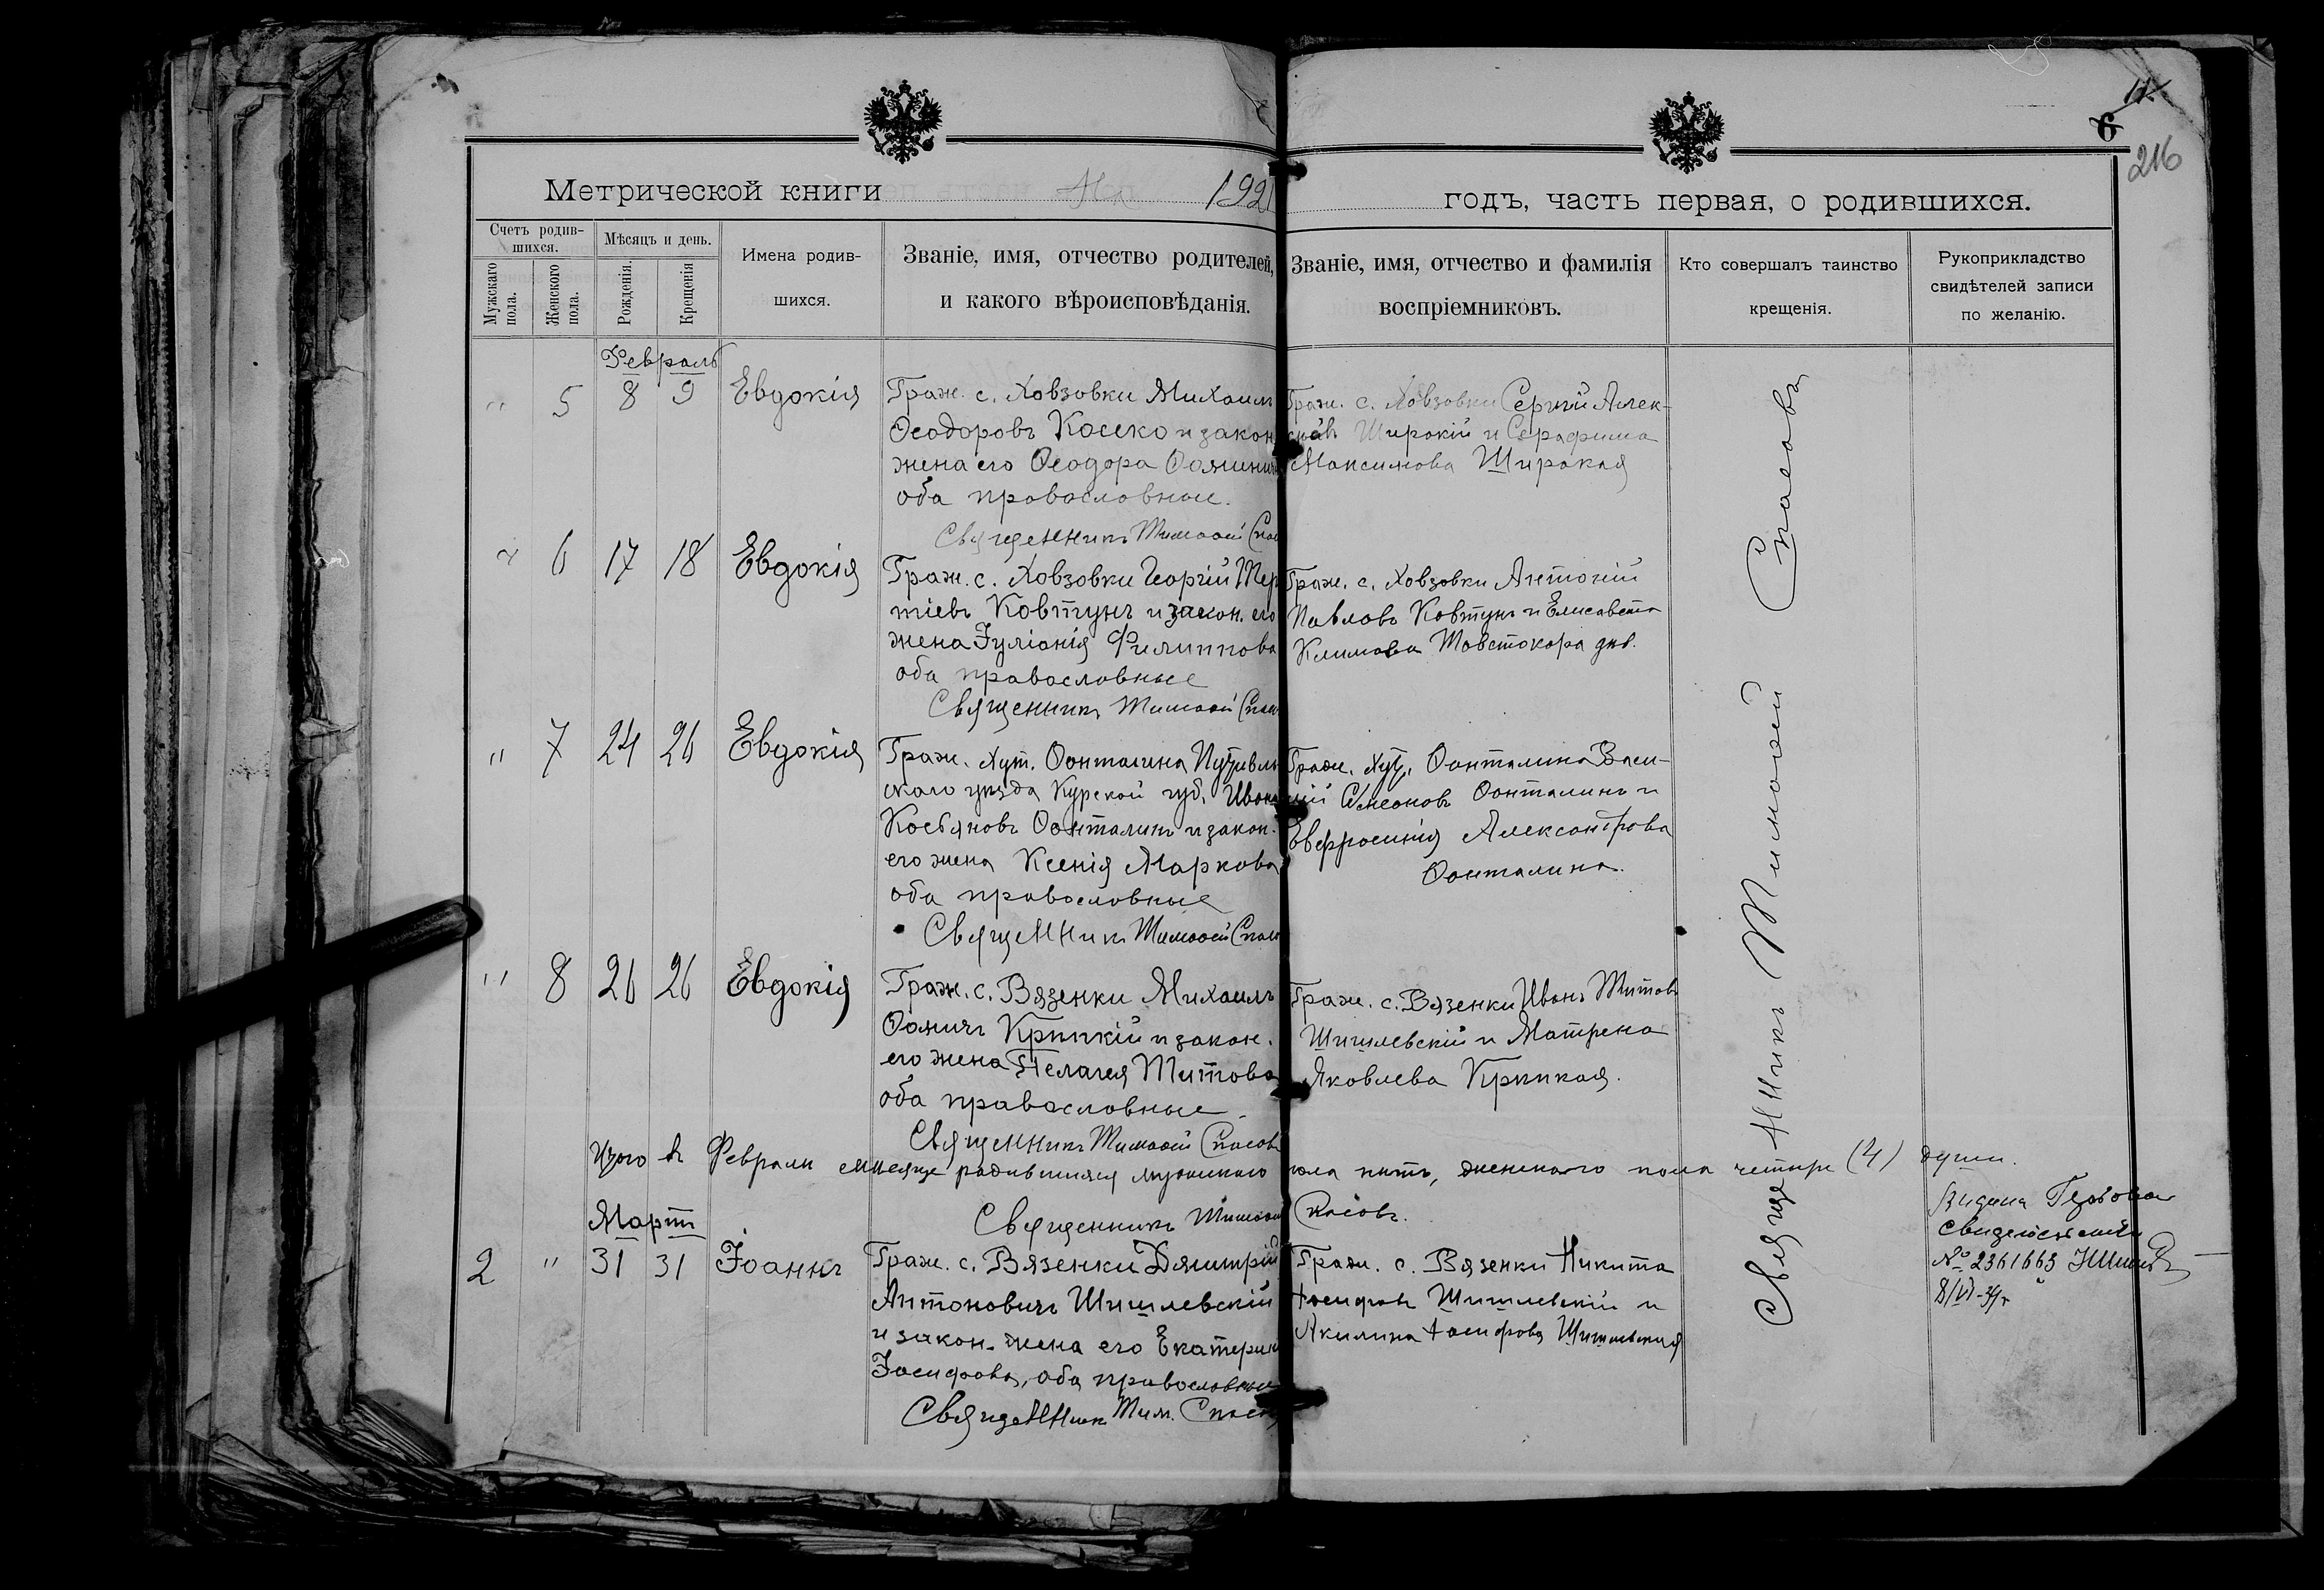 11.
6
216
Метрической книги на 1921
годъ, часть первая, о родившихся.
Счетъ родив-
шихся.
Мужскаго
пола.
Женского
пола.
Мѣсяцъ и день.
Рожденія.
Крещенія
Имена родив-
шихся.
Званіе, имя, отчество родителей,
и какого вѣроисповѣданія.
Званіе, имя, отчество и фамилія
воспріемниковъ.
Кто совершалъ таинство
крещенія.
Рукоприкладство
свидѣтелей записи
по желанію.
Февраль
" 5 8 9 Евдокія
Граж. с. Ховзовки Михаилъ
Ѳеодоровъ Косско и закон.
жена его Ѳеодора
оба православные.
Священникъ Тимоѳей Спас
Граж. с. Ховзовки Сергій Алек-
Широкій и Серафима
Максимова Широкая
" 6 17 18 Евдокія
Граж. с. Ховзовки Георгій Тер
тіевъ Ковтунъ и закон. его
жена Іуліанія Филиппова
оба православные
Священникъ Тимоѳей Спас
Граж. с. Ховзовки Антоній
Павловъ Ковтунъ и Елисавета
Климова Товстокора дѣв.
" 7 24 26 Евдокія
Граж. хут. Ѳонталина Путивль
скаго уѣзда Курской губ. Иван
Косьяновъ Ѳонталинъ и закон.
его жена Ксенія Маркова
оба православные
Священникъ Тимоѳей Спас
Граж. хут. Ѳонталина Васи-
лій Симеоновъ Ѳонталинъ и
Евфросинія Александрова
Ѳонталина.
" 8 26 26 Евдокія
Граж. с. Вязенки Михаилъ
Ѳомичъ Крпикій и закон.
его жена Пелагея Титова
оба православные.
Священникъ Тимоѳей Спасовъ
Граж. с. Вязенки Иванъ Титовъ
Шишлевскій и Матрена
Яковлева Крпикая.
Итого въ Февралѣ мѣсяцѣ родившихся мужского пола нѣтъ, женскаго пола четыре (4) души.
Священникъ Тимоѳей Спасовъ.
Мартъ
2 " 31 31 Іоаннъ
Граж. с. Вязенки Димитрій
Антоновичъ Шишлевскій
и закон. жена его Екатерин
Іосифова, оба православные
Священник Тим. Спасов
Граж. с. Вязенки Никита
Іосифовъ Шишлевскій и
Акилина Іосифова Шишлевская
Священникъ Тимоѳей Спасовъ
Видана
№ 2361663
8/VI-39г